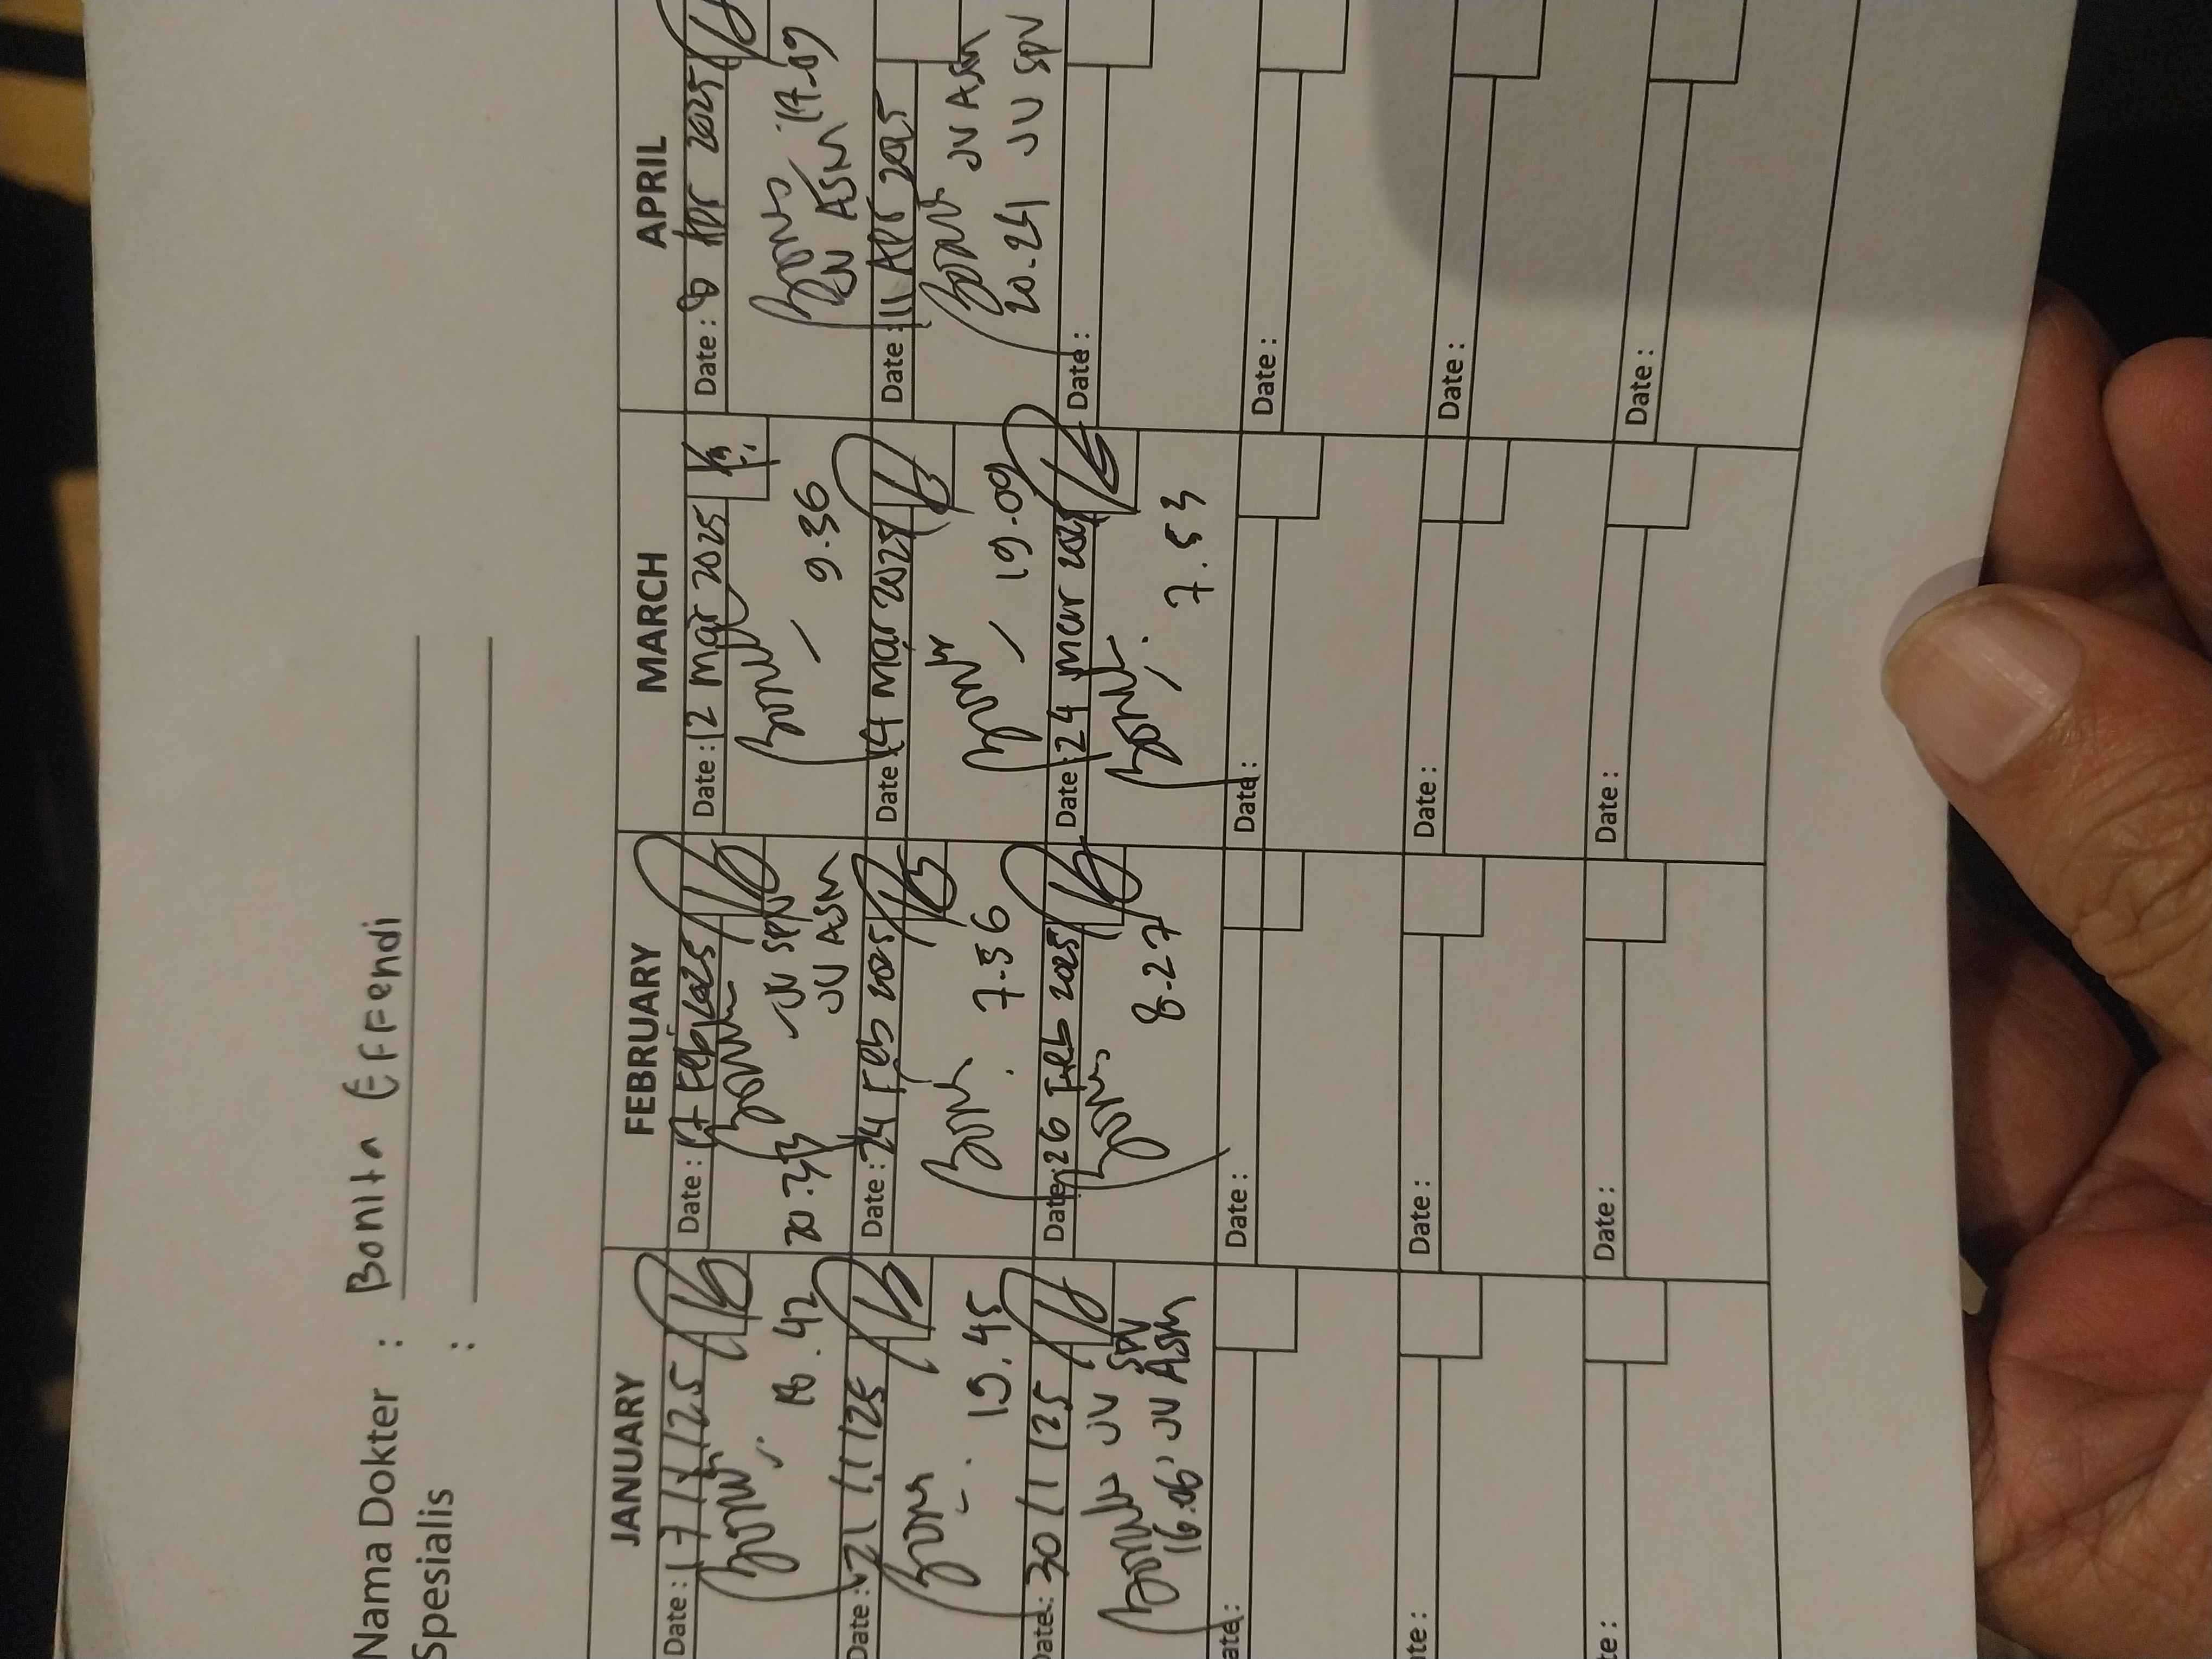 Nama Dokter : Bonita Effendi
Spesialis :
JANUARY FEBRUARY MARCH APRIL
Date : 17/1/25
18.42
Date : 21/1/25
19.45
Date : 30/1/25
JV SPV
16.06 JV ASM
Date :
Date :
Date :
Date : 17 Feb 2025
JV SPV
20.33 JV ASM
Date : 24 Feb 2025
7-36
Date : 26 Feb 2025
8-27
Date :
Date :
Date :
Date : 12 Mar 2025
9.36
Date : 14 Mar 2025
19.09
Date : 24 Mar 2025
7.53
Date :
Date :
Date :
Date : 8 Apr 2025
JV ASM
Date : 11 Apr 2025
JV ASM
20.24 JV SPV
Date :
Date :
Date :
Date :